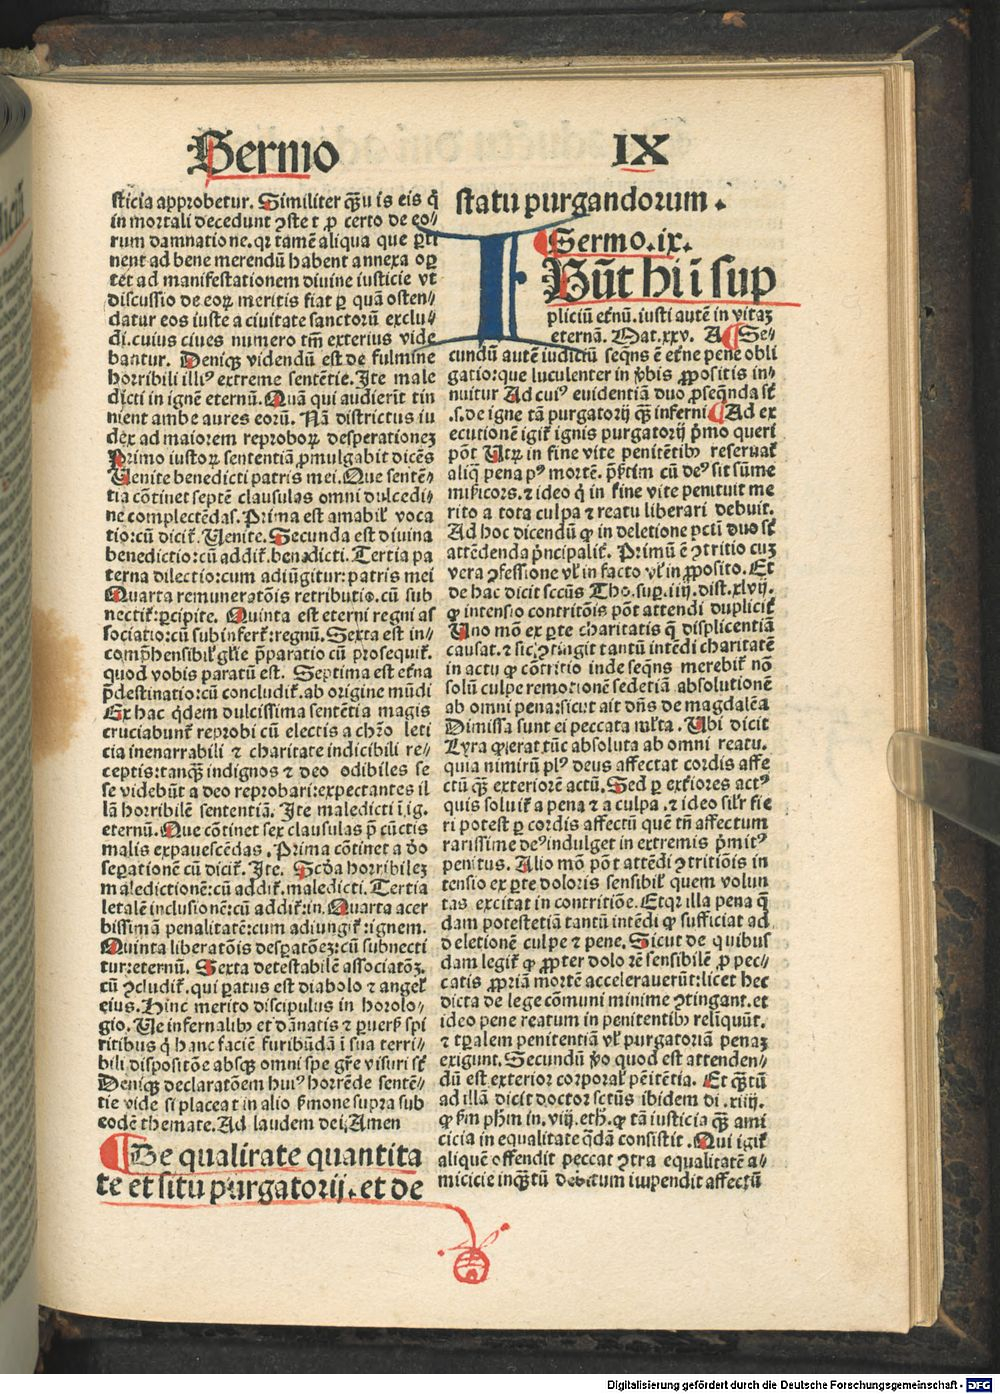 Sermo IX
sticia approbetur. Similiter qꝫuis eis q̄
in mortali decedunt ꝯstet ꝑ certo de eo⸗
rum damnatione. qꝛ tamē aliqua que ꝑti
nent ad bene merendū habent annexa opꝫ
tet ad manifestationem diuine iusticie vt
discussio de eoꝝ meritis fiat ꝑ quā osten⸗
datur eos iuste a ciuitate sanctorū exclu⸗
di. cuius ciues numero tm̄ exterius vide
bantur. Deniqꝫ videndū est de fulmine
horribili illiꝰ extreme sentētie. Ite male
dicti in ignē eternū. Quā qui audierīt tin
nient ambe aures eorū. Nā districtus iu
dex ad maiorem reproboꝝ desperationeꝫ
Primo iustoꝝ sententiā ꝓmulgabit dicēs
Uenite benedicti patris mei. Que sentē⸗
tia cōtinet septē clausulas omni dulcedi⸗
ne complectēdas. Prima est amabilꝭ voca
tio: cū dicit̉. Uenite. Secunda est diuina
benedictio: cū addit̉. benedicti. Tertia pa
terna dilectio: cum adiūgitur: patris mei
Quarta remuneratōis retributio. cū sub
nectit̉: ꝑcipite. Quinta est eterni regni as
sociatio: cū subinfert̉: regnū. Sexta est in⸗
comp̄hensibilꝭ gl̄ie p̄paratio cū prosequit̉.
quod vobis paratū est. Septima est et̄na
p̄destinatio: cū concludit̉. ab origine mūdi
Ex hac q̇dem dulcissima sentētia magis
cruciabunt̉ reprobi cū electis a chr̄o leti
cia inenarrabili ⁊ charitate indicibili re⸗
ceptis: tanqꝫ indignos ⁊ deo odibiles se
se videbūt a deo reprobari: expectantes il
lā horribilē sententiā. Ite maledicti ī ig.
eternū. Que cōtinet sex clausulas p̄ cūctis
malis expauescēdas. Prima cōtinet a dō
seꝑationē cū dicit̉. Ite. Scḋa horribileꝫ
maledictionē: cū addit̉. maledicti. Tertia
letalē inclusionē: cū addit̉: in. Quarta acer
bissimā penalitatē: cum adiungit̉: ignem.
Quinta liberatōis desꝑatōeꝫ: cū subnecti
tur: eternū. Sexta detestabilē associatōꝫ.
cū ꝯcludit̉. qui ꝑatus est diabolo ⁊ angel̉
eius. Hinc merito discipulus in horolo⸗
gio. Ue infernalibꝰ et dānatis ⁊ ꝑuers̉ spi
ritibus q̇ hanc faciē furibūdā ī sua terri⸗
bili dispositōe absqꝫ omni spe gr̄e visuri st̄
Deniqꝫ declaratōem huiꝰ horrēde sentē⸗
tie vide si placeat in alio ẜmone supra sub
eodē themate. Ad laudem dei, Amen
¶ De qualitate quantita
te et situ purgatorij. et de
statu purgandorum.
¶ Sermo. ix.
IBūt hi ī sup
pliciū et̄nū. iusti autē in vitaꝫ
eternā. Mat. xxv. A ¶ Se⸗
cundū autē iudiciū seq̄ns ē et̄ne pene obli
gatio: que luculenter in v̄bis ꝓpositis in⸗
nuitur Ad cuiꝰ euidentiā duo ꝓseq̄nda st̄
.s. de igne tā purgatorij qꝫ inferni ¶ Ad ex
ecutionē igit̉ ignis purgatorij p̄mo queri
pōt Utꝝ in fine vite penitētibꝰ reseruat̉
aliq̄ pena pꝰ mortē. p̄ẜtim cū deꝰ sit sūme
mis̄icors. ⁊ ideo q̇ in fine vite penituit me
rito a tota culpa ⁊ reatu liberari debuit.
Ad hoc dicendū ꝙ in deletione pcti̅ duo st̄
attēdenda p̄ncipalit̉. Primū ē ꝯtritio cuꝫ
vera ꝯfessione vl̉ in facto vl̉ in ꝓposito. Et
de hac dicit sctū̄s Tho. sup. iiij. dist. xlvij.
ꝙ intensio contritōis pōt attendi duplicit̉
Uno mō ex ꝑte charitatis q̄ displicentiā
causat. ⁊ sic ꝯtingit tantū intēdi charitatē
in actu ꝙ cōtritio inde seq̄ns merebit̉ nō
solū culpe remotionē sed etiā absolutionē
ab omni pena: sicut ait dn̄s de magdalēa
Dimissa sunt ei peccata ml̉ta. Ubi dicit
Lyra ꝙ erat tūc absoluta ab omni reatu.
quia nimirū plꝰ deus affectat cordis affe
ctū qꝫ exteriorē actū. Sed ꝑ ext̉iores actꝰ
quis soluit̉ a pena ⁊ a culpa. ⁊ ideo sil̉r fie
ri potest ꝑ cordis affectū quē tn̄ affectum
rarissime deꝰ indulget in extremis p̄mitꝰ
penitus. Alio mō pōt attēdi ꝯtritiōis in
tensio ex ꝑte doloris sensibil̉ quem volun
tas excitat in contritiōe. Etqꝛ illa pena q̄
dam potest etiā tantū intēdi ꝙ sufficiat ad
deletionē culpe ⁊ pene. Sicut de quibus
dam legit̉ ꝙ ꝓpter dolorē sensibilē ꝓ pec⸗
catis ꝓpriā mortē accelerauerūt: licet hec
dicta de lege cōmuni minime ꝯtingant. et
ideo pene reatum in penitentibꝰ relīquūt.
⁊ tꝑalem penitentiā vl̉ purgatoriā penaꝫ
exigunt. Secundū v̊o quod est attenden⸗
dū est exterior corporal̉ pēitētia. Et qꝫtū
ad illā dicit doctor sctū̄s ibidem di. xiiij.
ꝙ ẜm phm̄ in. viij. eth. ꝙ tā iusticia qꝫ ami
cicia in equalitate q̇dā consistit. Qui igit̉
aliquē offendit peccat ꝯtra equalitatē a⸗
micicie inqꝫtū debitum īpendit affectū
Digitalisierung gefördert durch die Deutsche Forschungsgemeinschaft - DFG